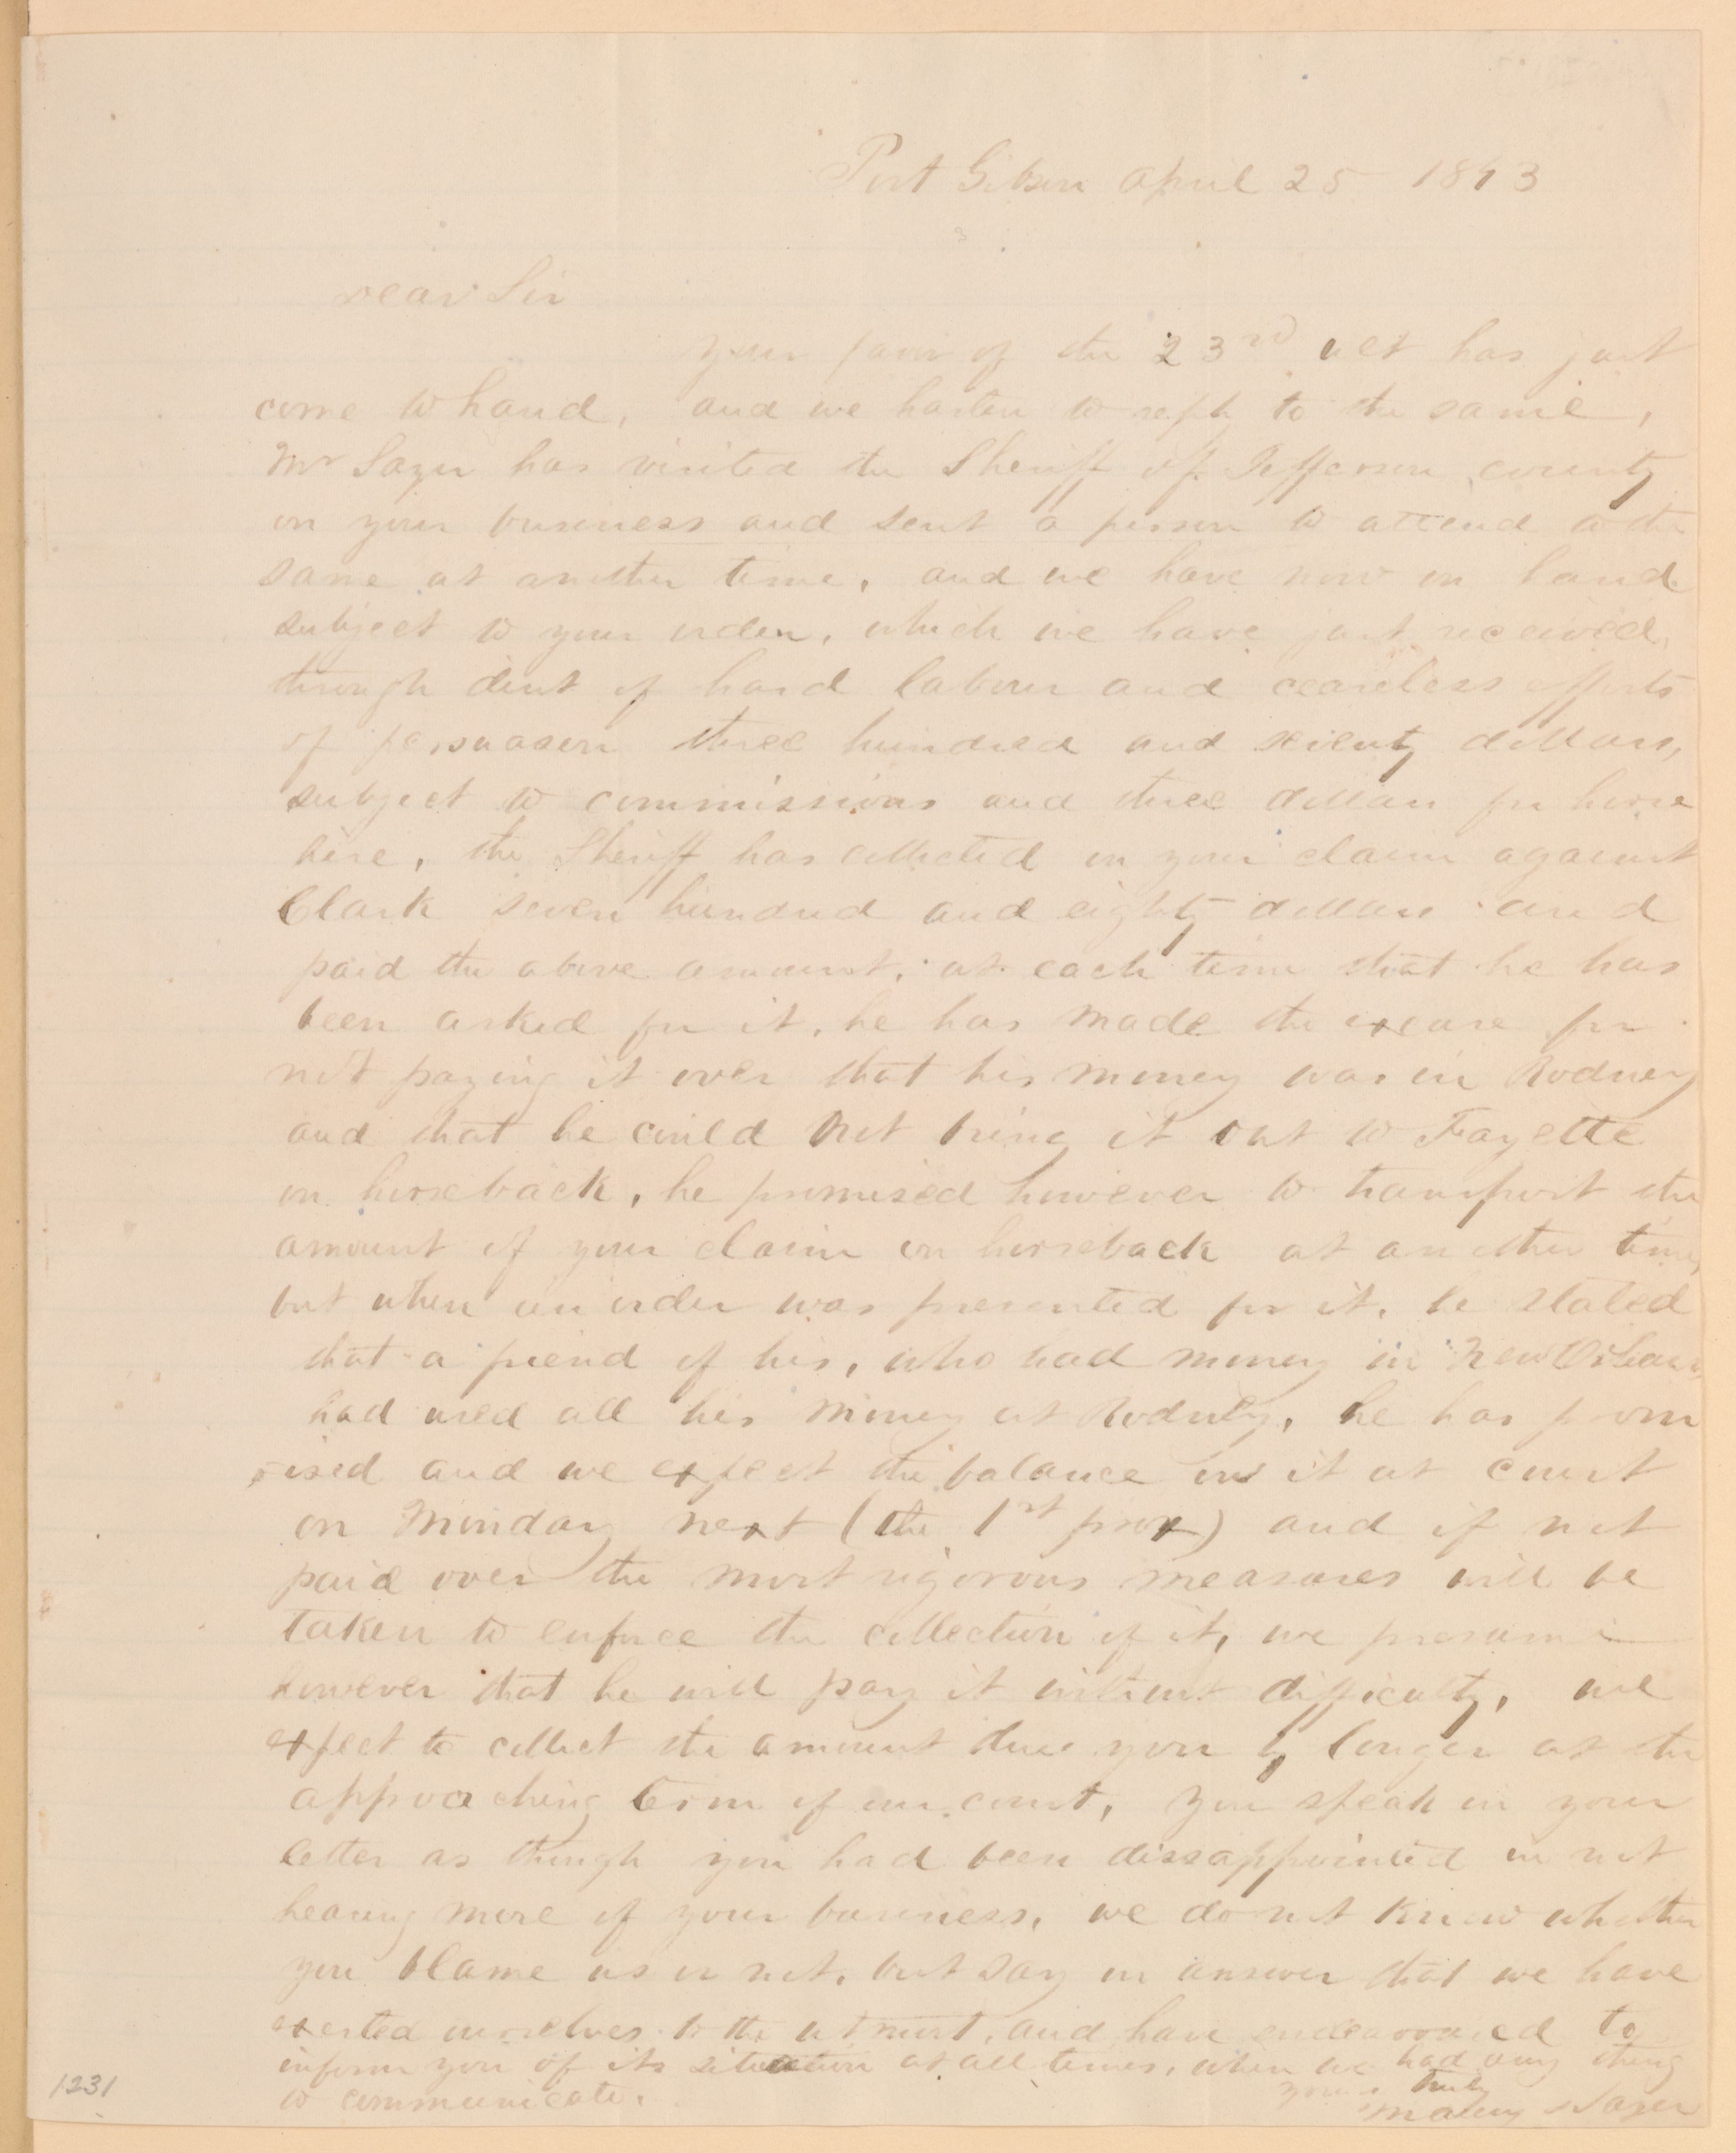 Port Gibson April 25 1843
Dear Sir
Your favor of the 23rd ult has just
come to hand, and we hasten to reply to the same,
Mr Sayer has visited the Sheriff of Jefferson county
on your business and sent a person to attend to the
same at another time, and we have now on hand
subject to your order, which we have just received,
through dint of hard labour and ceaseless efforts
of persuasion three hundred and seventy dollars,
subject to commissions and three dollars for horse
hire, the Sheriff has collected on your claim against
Clark seven hundred and eighty dollars and
paid the above amount, at each time that he has
been asked for it, he has made the excuse for
not paying it over that his money was in Rodney
and that he could not bring it out to Fayette
on horseback, he promised however to transport the
amount of your claim on horseback at another time,
but when an order was presented for it, he stated
that a friend of his, who had money in New Orleans,
had used all his money at Rodney, he has prom
ised and we expect the balance on it at court
on Monday next (the 1st prox) and if not
paid over the most rigorous measures will be
taken to enforce the collection of it, we presume
however that he will pay it without difficulty, we
expect to collect the amount due you by Conger at the
approaching term of our court, You speak in your
letter as though you had been dissappointed in not
hearing more of your business, we do not know whether
you blame us or not, but say in answer that we have
exerted ourselves to the utmost, and have endeavoured to
inform you of its situation at all times, when we had any thing
to communicate.
yours truly
1231